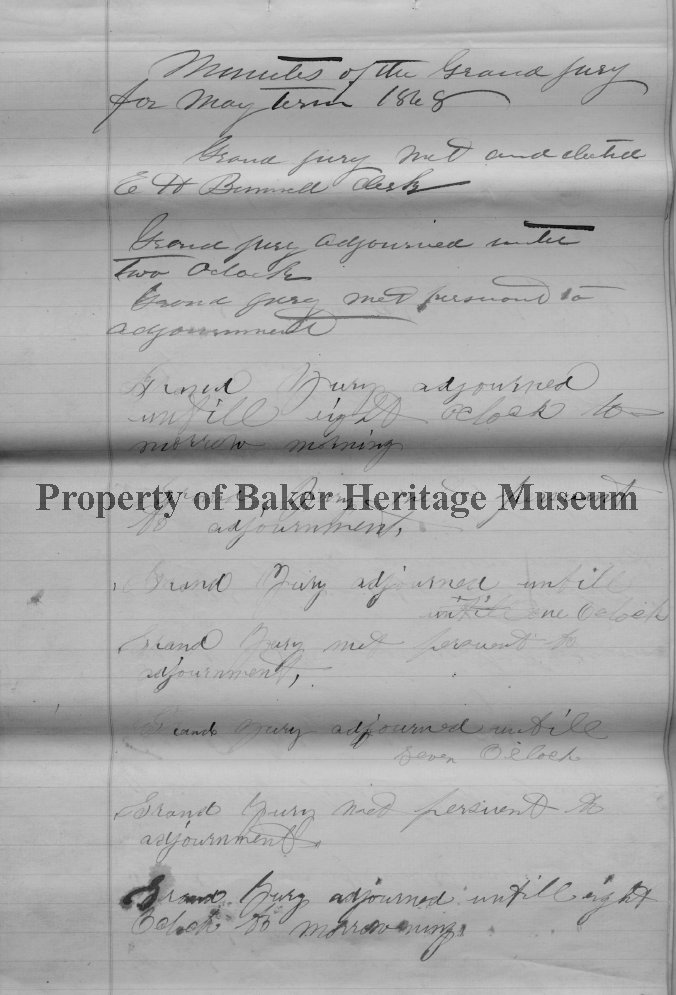 Minutes of the Grand jury
for May term 1868
Grand jury met and elected
E H clerk
Grand jury adjourned untill
two Oclock
Grand jury met persuant to
adjournment
Grand Jury adjourned
untill eight Oclock to
morrow morning
Grand Jury met persuent
Property of Baker Heritage Museum
to adjournment,
Grand Jury adjourned untill
untill one Oclock
Grand Jury met persuent to
adjournment,
Grand Jury adjourned untill
seven Oclock
Grand Jury met persuent to
adjournment,
Grand Jury adjourned untill eight
Oclock to morrow ning